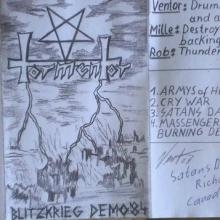 Tormentor
BLITZKRIEG DEMO'84
Ventor: Drum
and
Mille: Destroy
backing
Rob: Thunder
1. ARMYS OF H
2. CRY WAR
3. SATANS DA
4. MASSENGER
BURNING DE
Satans
Rich
Canad